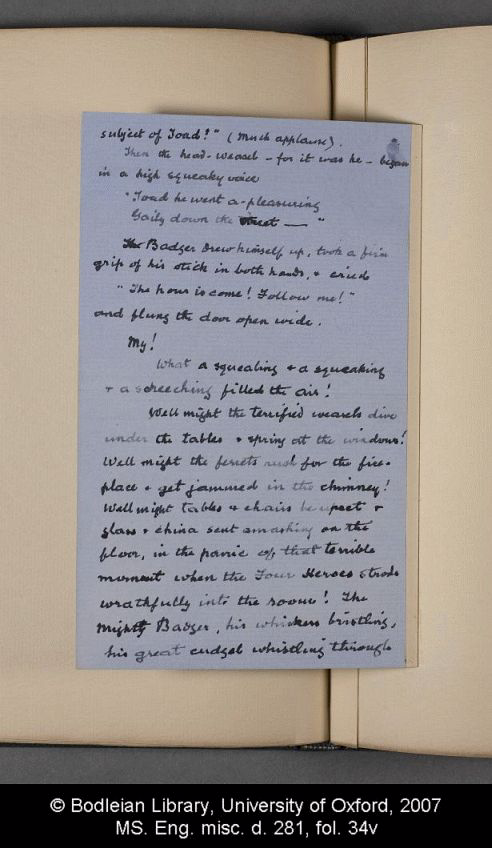 subject of Toad!" (Much applause).
Then the head-weasel - for it was he - began
in a high squeaky voice
"Toad he went a-pleasuring
Gaily down the street — "
The Badger drew himself up, took a firm
grip of his stick in both hands, & cried
"The hour is come! Follow me!"
and flung the door open wide.
My!
What a squealing & a squeaking
& a screeching filled the air!
Well might the terrified weasels dive
under the tables & spring at the windows!
Well might the ferrets rush for the fire-
place & get jammed in the chimney!
Well might tables & chairs be upset &
glass & china sent smashing on the
floor, in the panic of that terrible
moment when the Four Heroes strode
wrathfully into the room! The
mighty Badger, his whiskers bristling,
his great cudgel whistling through
© Bodleian Library, University of Oxford, 2007
MS. Eng. misc. d. 281, fol. 34v